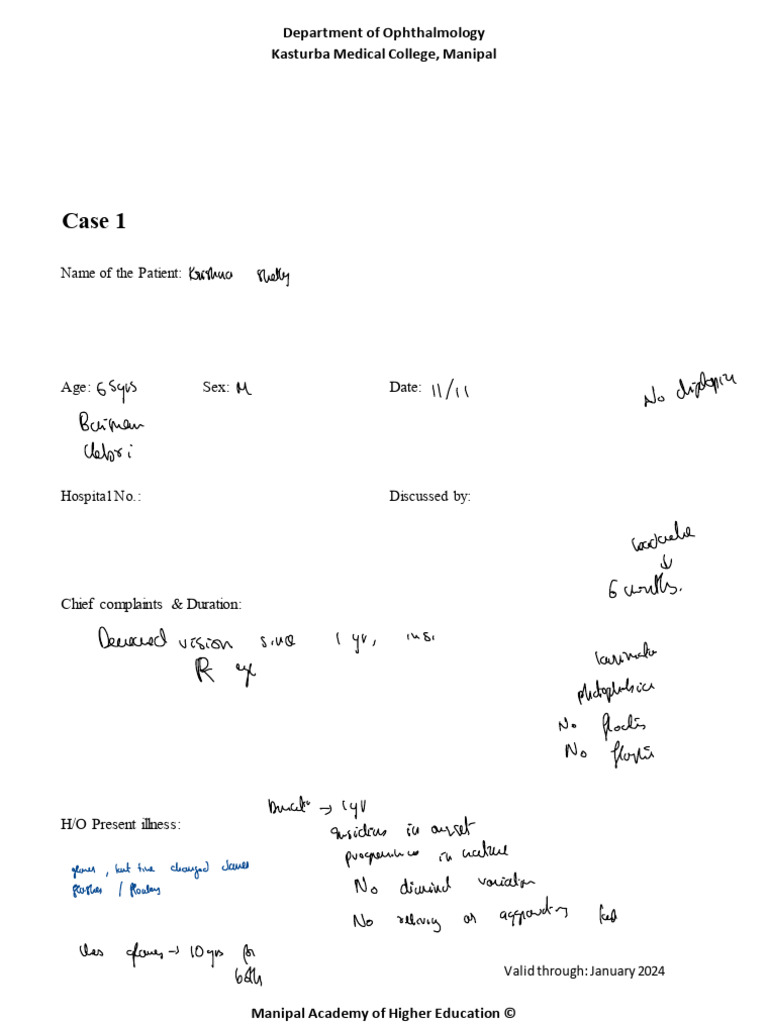 Department of Ophthalmology
Kasturba Medical College, Manipal
Case 1
Name of the Patient: Krishna Shetty
Age: 65yrs Sex: M Date: 11/11
No diplopia
Hospital No.: Discussed by:
headache
↓
6 months.
Chief complaints & Duration:
Decreased vision since 1 yr, insi
R eye
No
No
Duration → 1yr
H/O Present illness:
insidious in onset
progressive in nature
No diurnal variation
No relieving or aggravating fact
glares, but
flashes / floaters
Uses glasses → 10 yrs for
both
Valid through: January 2024
Manipal Academy of Higher Education ©